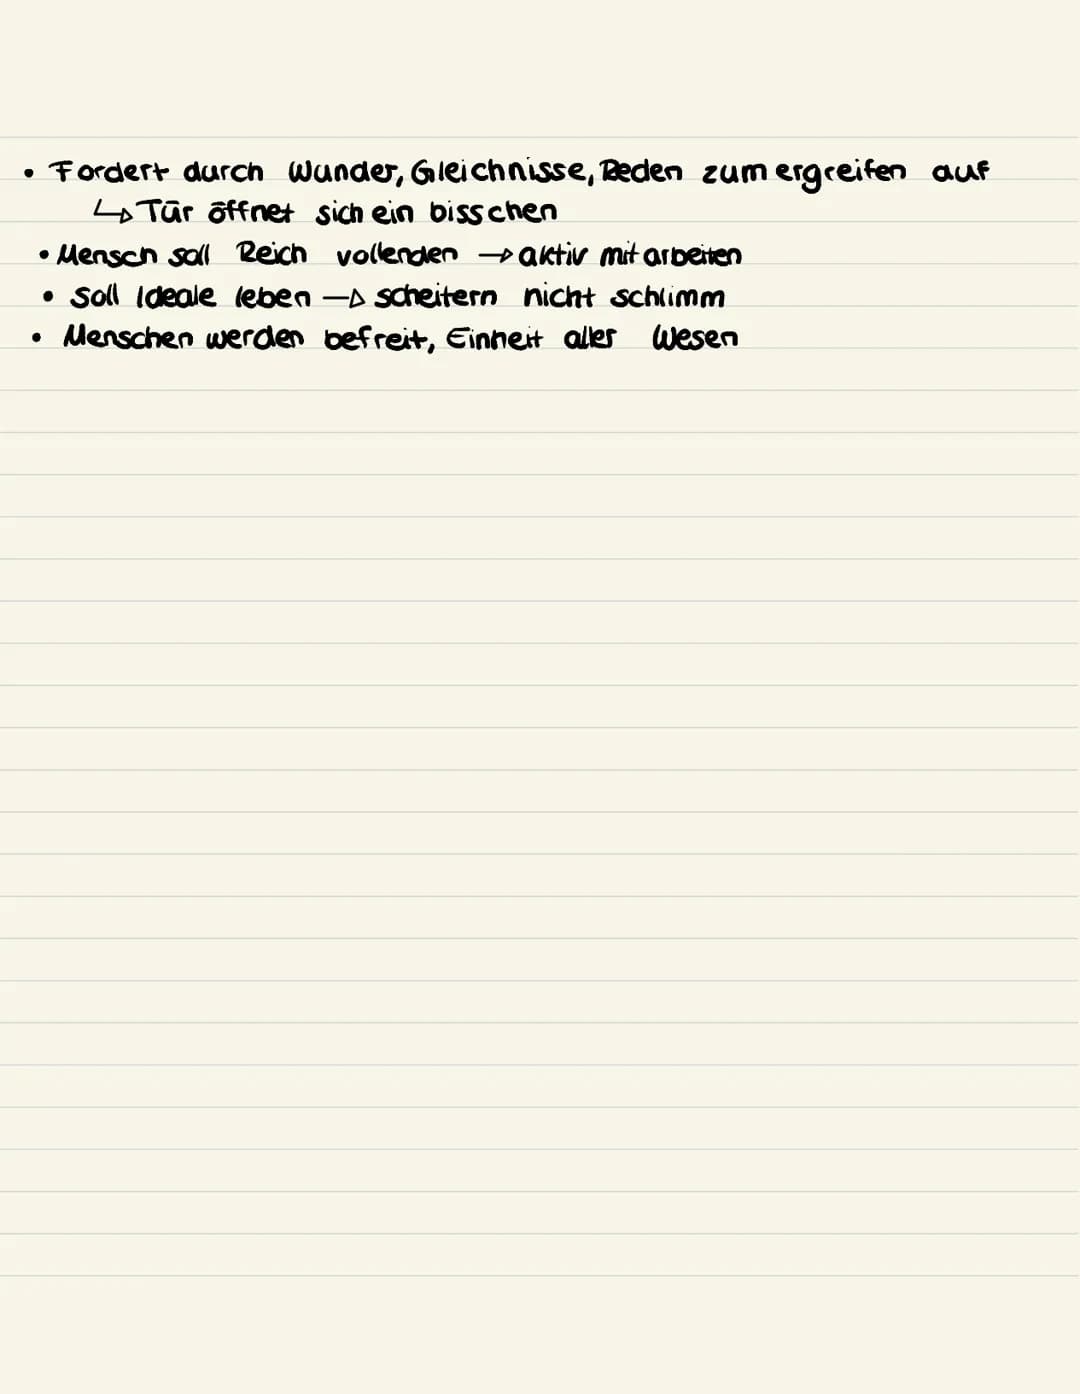 • Fordert durch Wunder, Gleichnisse, Reden zum ergreifen auf
↳ Tür öffnet sich ein bisschen
• Mensch soll Reich vollenden → aktiv mitarbeiten
• Soll Ideale leben → scheitern nicht schlimm
• Menschen werden befreit, Einheit aller Wesen